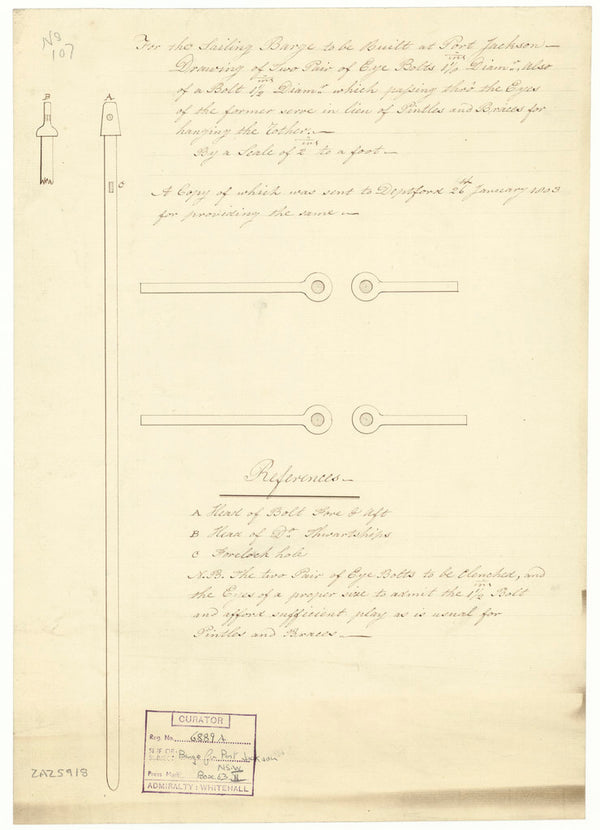 No
107
For the Sailing Barge to be Built at Port Jackson —
Drawing of Two Pair of Eye Bolts 1½ ins Diamr. Also
of a Bolt 1½ ins Diamr. which passing thro' the Eyes
of the former serve in lieu of Pintles and Braces for
hanging the Rother. —
By a Scale of 2 ins to a foot —
A Copy of which was sent to Deptford 26th January 1803
for providing the same —
B
A
C
References —
A Head of Bolt Fore & Aft
B Head of Do. Thwartships
C Forelock hole
N.B. The two Pair of Eye Bolts to be Clenched, and
the Eyes of a proper size to admit the 1½ ins Bolt
and afford sufficient play as is usual for
Pintles and Braces —
CURATOR
Reg. No. 6889A
SUBJECT Barge for Port Jackson
NSW
Press Mark Box 63 II
ADMIRALTY: WHITEHALL
ZAZ5918